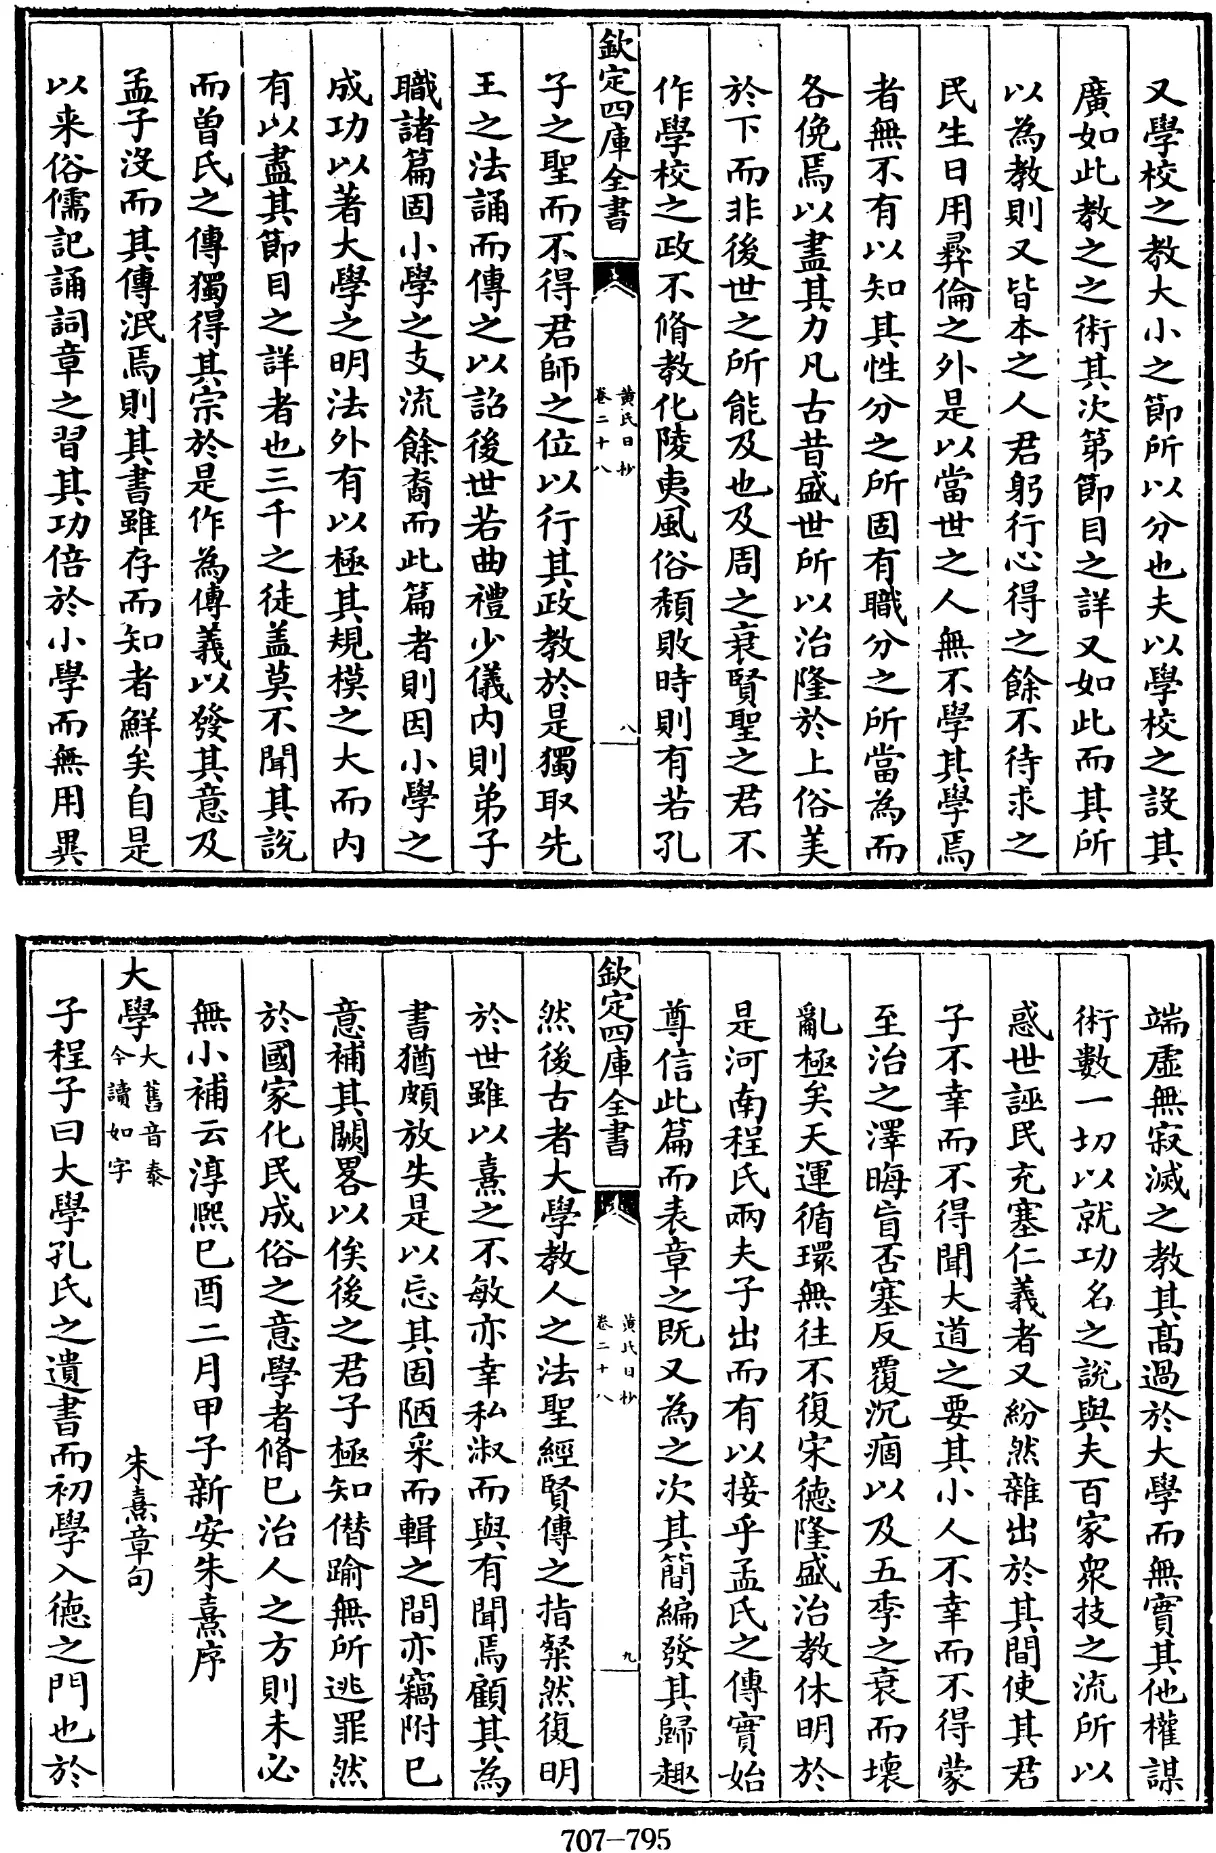 又學校之教大小之節所以分也夫以學校之設其
廣如此教之之術其次第節目之詳又如此而其所
以為教則又皆本之人君躬行心得之餘不待求之
民生日用彛倫之外是以當世之人無不學其學焉
者無不有以知其性分之所固有職分之所當為而
各俛焉以盡其力凡古昔盛世所以治隆於上俗美
於下而非後世之所能及也及周之衰賢聖之君不
作學校之政不脩教化陵夷風俗頽敗時則有若孔
欽定四庫全書
黄氏日抄
卷二十八
八
子之聖而不得君師之位以行其政教於是獨取先
王之法誦而傳之以詔後世若曲禮少儀内則弟子
職諸篇固小學之支流餘裔而此篇者則因小學之
成功以著大學之明法外有以極其規模之大而内
有以盡其節目之詳者也三千之徒盖莫不聞其説
而曽氏之傳獨得其宗於是作為傳義以發其意及
孟子沒而其傳泯焉則其書雖存而知者鮮矣自是
以来俗儒記誦詞章之習其功倍於小學而無用異
端虛無寂滅之教其髙過於大學而無實其他權謀
術數一切以就功名之説與夫百家衆技之流所以
惑世誣民充塞仁義者又紛然雜出於其間使其君
子不幸而不得聞大道之要其小人不幸而不得蒙
至治之澤晦盲否塞反覆沉痼以及五季之衰而壞
亂極矣天運循環無往不復宋德隆盛治教休明於
是河南程氏兩夫子出而有以接乎孟氏之傳實始
尊信此篇而表章之既又為之次其簡編發其歸趣
欽定四庫全書
黄氏日抄
卷二十八
九
然後古者大學教人之法聖經賢傳之指粲然復明
於世雖以熹之不敏亦幸私淑而與有聞焉顧其為
書猶頗放失是以忘其固陋采而輯之間亦竊附已
意補其闕畧以俟後之君子極知僭踰無所逃罪然
於國家化民成俗之意學者脩已治人之方則未必
無小補云淳熈已酉二月甲子新安朱熹序
大學大舊音泰今讀如字 朱熹章句
子程子曰大學孔氏之遺書而初學入德之門也於
707-795